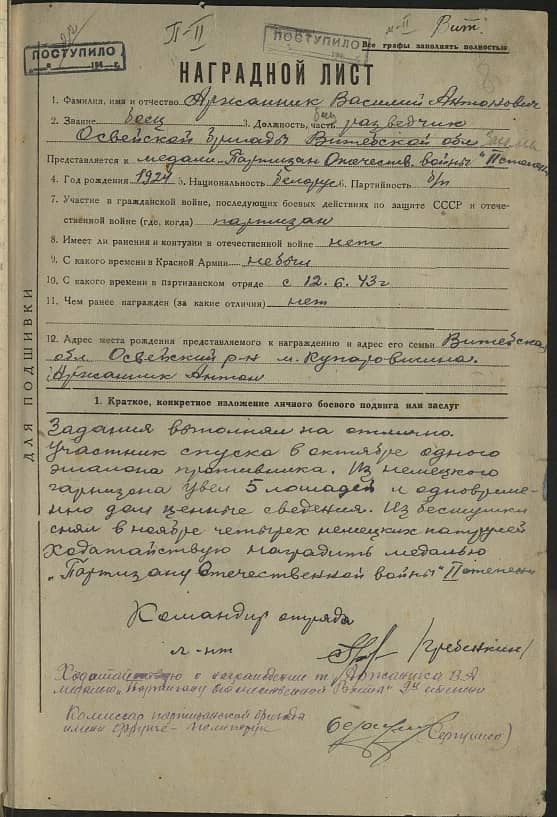 П-II
Вит.
ПОСТУПИЛО
194 г.
ПОСТУПИЛО
194 г.
Все графы заполнять полностью
НАГРАДНОЙ ЛИСТ
1. Фамилия, имя и отчество Аржаник Василий Антонович
2. Звание боец 3. Должность, часть разведчик
Освейской бригады Витебской обл
Представляется к медали "Партизан Отечеств. войны" II степени
4. Год рождения 1924 5. Национальность белорус 6. Партийность б/п
7. Участие в гражданской войне, последующих боевых действиях по защите СССР и отече-
ственной войне (где, когда) партизан
8. Имеет ли ранения и контузии в отечественной войне нет
9. С какого времени в Красной Армии не был
10. С какого времени в партизанском отряде с 12.6.43г
11. Чем ранее награжден (за какие отличия) нет
12. Адрес места рождения представляемого к награждению и адрес его семьи Витебская
обл. Освейский р-н
Аржаник Антон
ДЛЯ ПОДШИВКИ
1. Краткое, конкретное изложение личного боевого подвига или заслуг
Задания выполнял на отлично.
Участник спуска в октябре одного
эшалона противника. Из немецкого
гарнизона увел 5 лошадей и одновреме-
нно дал ценные сведения. Из бесшумки
снял в ноябре четырех немецких патрулей
Ходатайствую наградить медалью
"Партизану Отечественной войны" II степени
Командир отряда
л-нт /Гребенкин/
Ходатайствую о награждении т. Аржаника В.А
медалью "Партизану Отечественной Войны" 2й степени
Комиссар партизанской бригады
имени Фрунзе - политрук